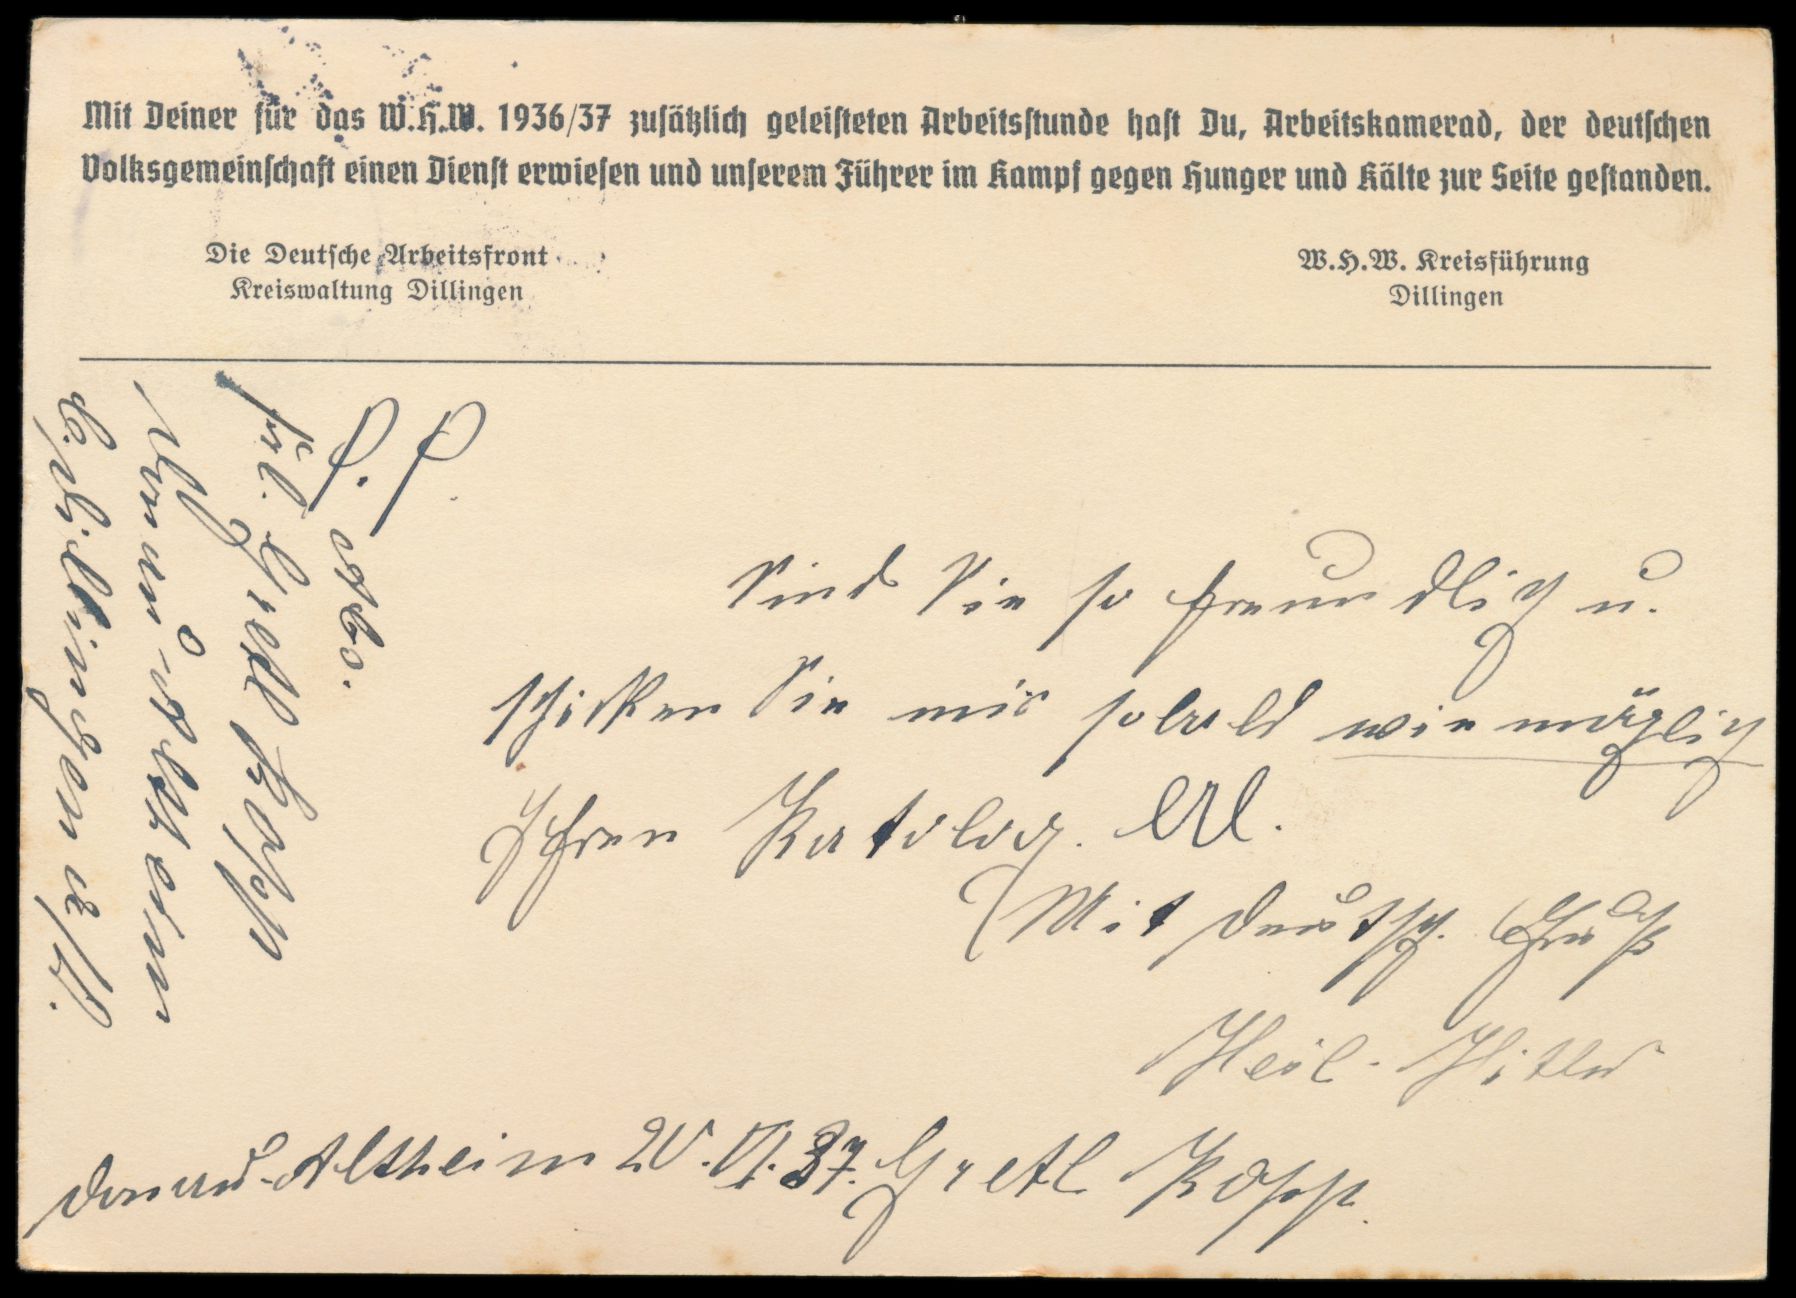 Mit Deiner für das W.H.W. 1936/37 zusätzlich geleisteten Arbeitsstunde hast Du, Arbeitskamerad, der deutschen
Volksgemeinschaft einen Dienst erwiesen und unserem Führer im Kampf gegen Hunger und Kälte zur Seite gestanden.
Die Deutsche Arbeitsfront
Kreiswaltung Dillingen
W.H.W. Kreisführung
Dillingen
P. P.
Sind Sie so freundlich u.
schicken Sie mir sobald wie möglich
Ihren Katolog.
Mit deutsch. Gruß
Heil-Hitler
Donau-Altheim 20. VI. 37. Gretl Kopp.
Abs.
Frl. Gretl Kopp
Donau-Altheim
b. Dillingen a/D.